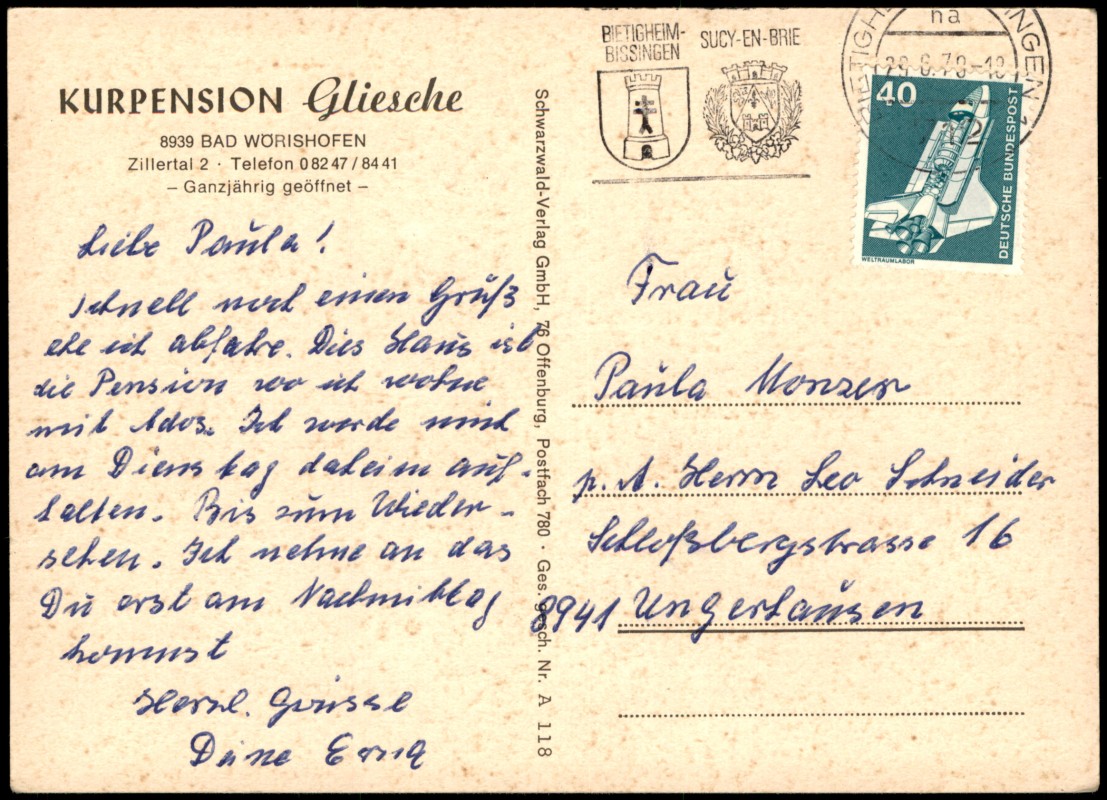 KURPENSION Gliesche
8939 BAD WÖRISHOFEN
Zillertal 2 · Telefon 0 82 47 / 84 41
– Ganzjährig geöffnet –
Liebe Paula!
Schnell noch einen Gruß
ehe ich abfahre. Dies Haus ist
die Pension wo ich wohne
mit Ados. Ich werde mich
am Dienstag daheim auf-
halten. Bis zum Wieder-
sehen. Ich nehme an das
Du erst am Nachmittag
kommst
Herzl. Grüsse
Deine Erna
Schwarzwald-Verlag GmbH, 76 Offenburg, Postfach 780 · Ges. gesch. Nr. A 118
BIETIGHEIM-
BISSINGEN
SUCY-EN-BRIE
na
40
DEUTSCHE BUNDESPOST
WELTRAUMLABOR
Frau
Paula Monzer
p. A. Herrn Leo Schneider
Schloßbergstrasse 16
8941 Ungerhausen